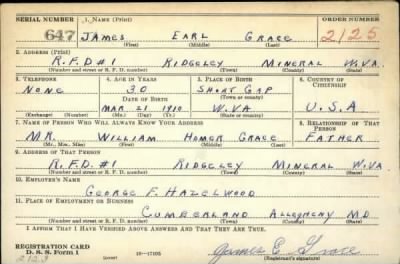 SERIAL NUMBER 1. NAME (Print) ORDER NUMBER
647 JAMES EARL GRACE 2125
(First) (Middle) (Last)
2. ADDRESS (Print)
R.F.D #1 RIDGELEY MINERAL W.VA.
(Number and street or R. F. D. number) (Town) (County) (State)
3. TELEPHONE 4. AGE IN YEARS 5. PLACE OF BIRTH 6. COUNTRY OF CITIZENSHIP
NONE 30 SHORT GAP
DATE OF BIRTH
MAR. 21 1910 W.VA U.S.A
(Exchange) (Number) (Mo.) (Day) (Yr.) (State or country)
7. NAME OF PERSON WHO WILL ALWAYS KNOW YOUR ADDRESS 8. RELATIONSHIP OF THAT PERSON
MR. WILLIAM HOMER GRACE FATHER
(Mr., Mrs., Miss) (First) (Middle) (Last)
9. ADDRESS OF THAT PERSON
R.F.D. #1 RIDGELEY MINERAL W.VA
(Number and street or R. F. D. number) (Town) (County) (State)
10. EMPLOYER'S NAME
GEORGE F. HAZELWOOD
11. PLACE OF EMPLOYMENT OR BUSINESS
CUMBERLAND ALLEGHENY MD
(Number and street or R. F. D. number) (Town) (County) (State)
I AFFIRM THAT I HAVE VERIFIED ABOVE ANSWERS AND THAT THEY ARE TRUE.
REGISTRATION CARD
D. S. S. Form 1 (over) 16—17105 James E. Grace
(Registrant's signature)